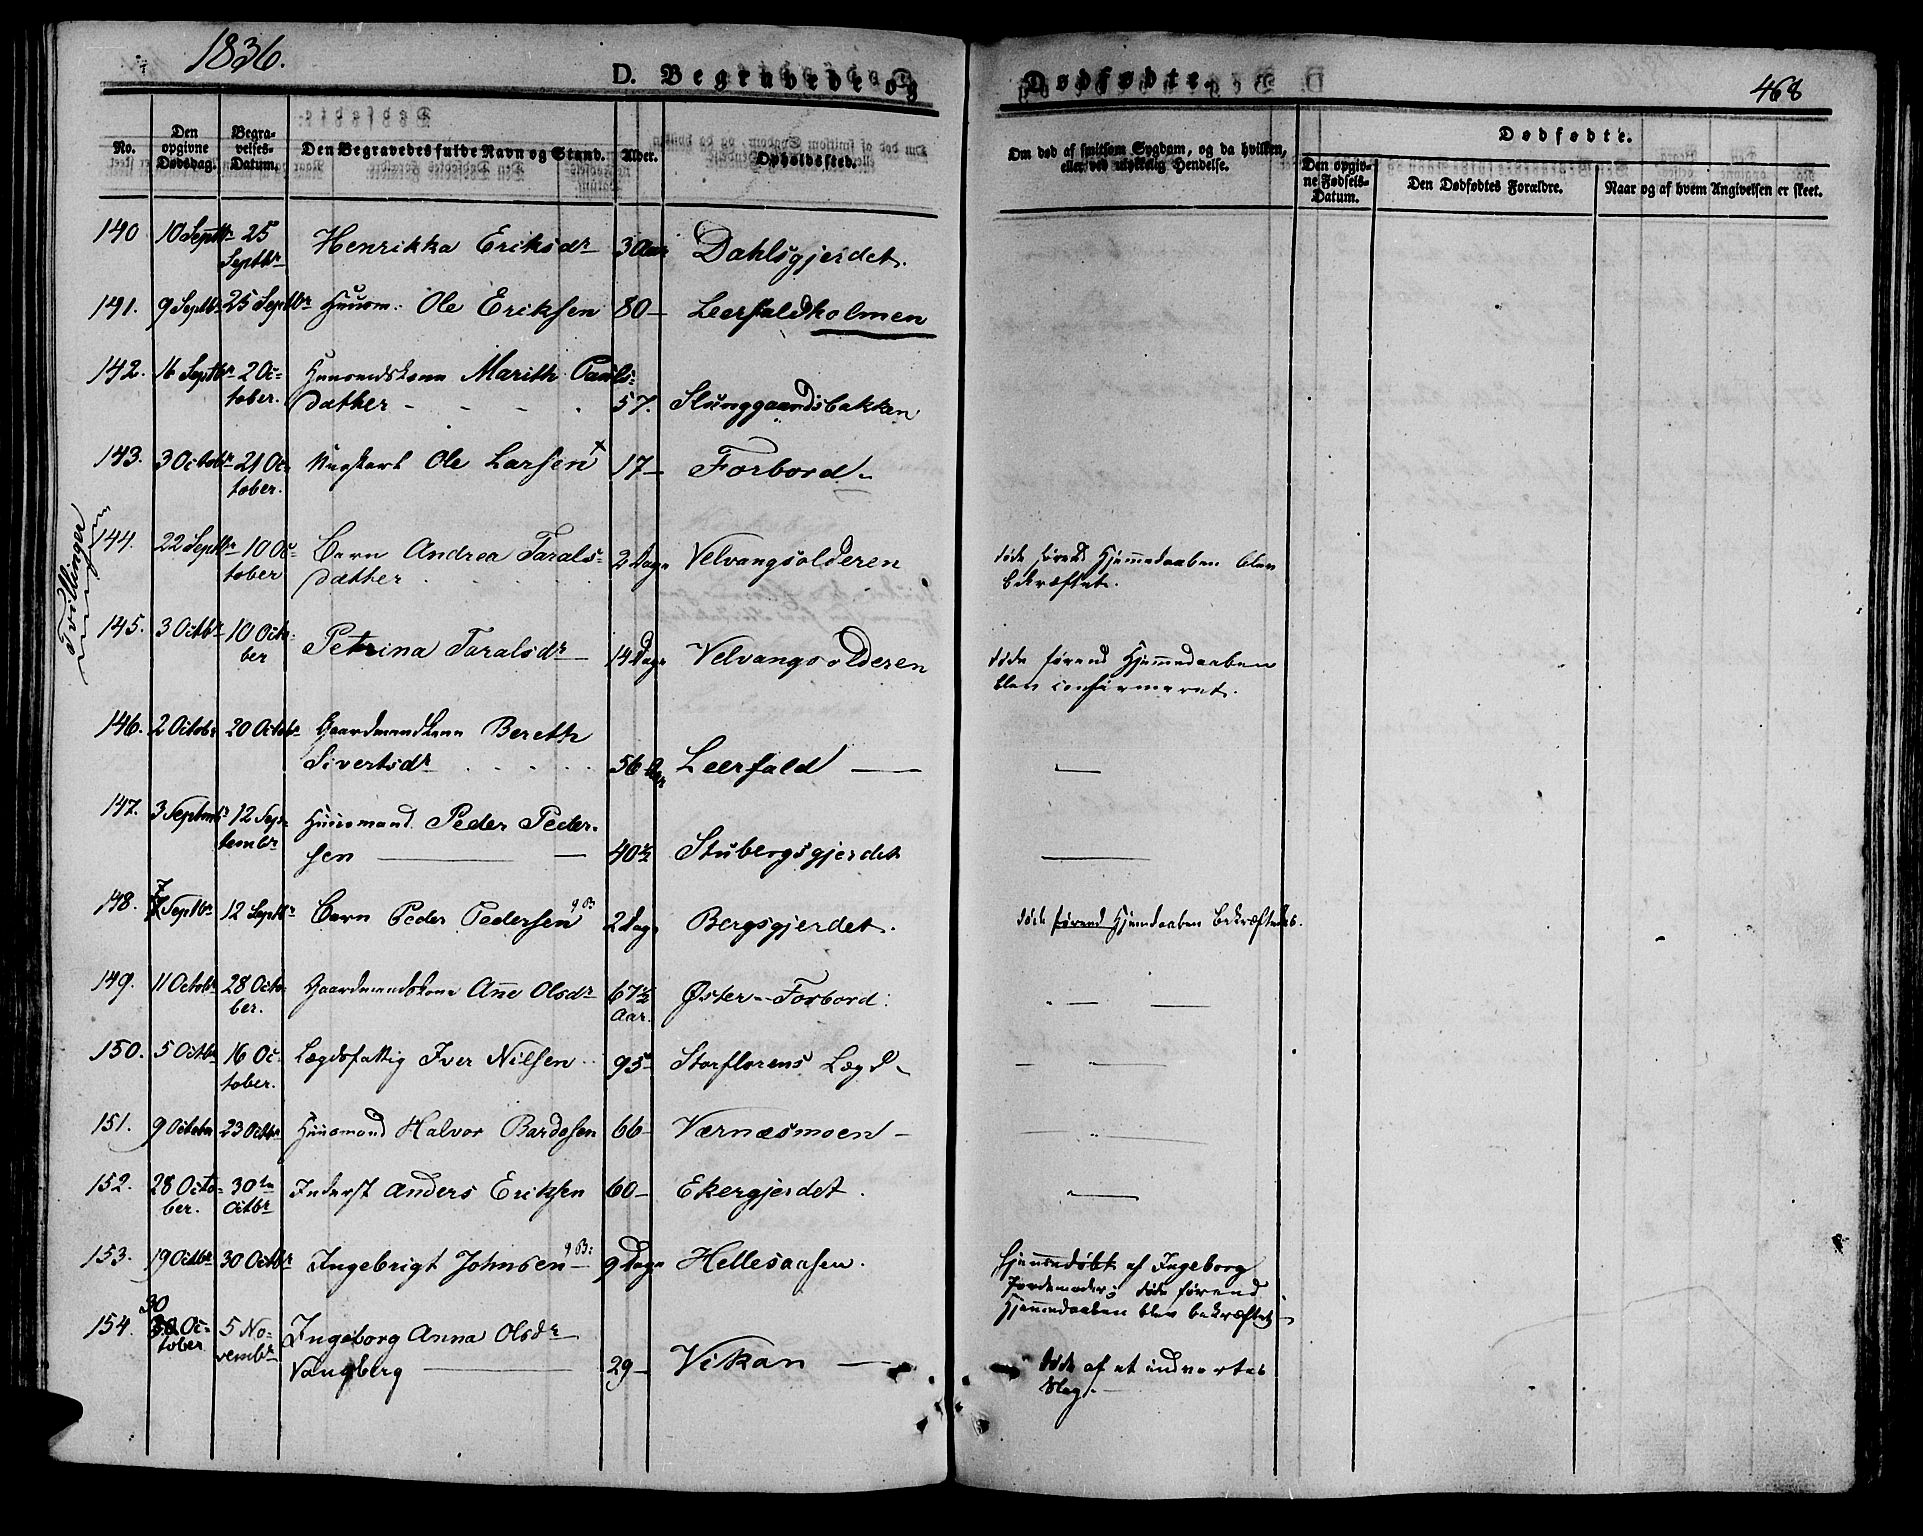 1836.
D. Begravede og Dødfødte.
468
No.
Den opgivne Dødsdag.
Begravelses-Datum.
Den Begravedes fulde Navn og Stand.
Alder.
Opholdssted.
Om død af smitsom Sygdom, og da hvilken, eller ved ulykkelig Hendelse.
Dødfødte.
Den opgivne Fødsels-Datum.
Den Dødfødtes Forældre.
Naar og af hvem Angivelsen er skeet.
140 10 Septbr 25 Septbr Henrikka Eriksdr 3 Aar Dahlsgjerdet.
141. 9 Septbr 25 Septbr Huusm: Ole Eriksen 80 – Leerfaldholmen
142. 16 Septbr 2 Oc-
tober. Huusmdskone Marith Paals-
dather - - - . 57. Stunggaardsbakken
143. 3 Octobr 21 Oc-
tober. Ole Larsen + 17 – Forbord
Tvillinger
144. 22 Septbr 10 Oc-
tober Barn Andrea Tarals-
dather 2 Dage Velvangsolderen døde førend Hjemmedaaben blev
bekræftet.
145. 3 Octbr 10 Octo-
ber Petrina Taralsdr 14 Dage Velvangsolderen døde førend Hjemmedaaben
blev confirmeret.
146. 2 Octobr 20 Octobr Gaardmandskone Bereth
Sivertsdr 56 Aar Leerfald —
147. 3 Septembr 12 Sep-
tembr Huusmand Peder Peder-
sen — 40½ Stubergsgjerdet —
148. 7 Septbr 12 Septbr Barn Peder Pedersen g B 2 Dage Bergsgjerdet. døde førend Hjemdaaben bekræftedes.
149. 11 Octobr 28 Octo-
ber. Gaardmandskone Ane Olsdr 67½
Aar. Øster-Forbord —
150. 5 Octbr 16 Oc-
tober. Lægdsfattig Iver Nilsen 95 Storflorens Lægd —
151. 9 October 23 Octbr Huusmand Halvor Bardosen 66 – Værnæsmoen –
152. 28 Octo-
ber. 30te
Octbr Inderst Anders Eriksen 60 – Ekergjerdet. —
153. 19 Octbr 30 Octbr Ingebrigt Johnsen g B: 9 Dage Hellesaasen. Hjemmedøbt af Ingeborg
Jordemoder; døde førend
Hjemmedaaben blev bekræftet
154. 30 Oc-
tober 5 No-
vembr Ingeborg Anna Olsdr
Vangberg 29 – Vikan — døde af et indvortes
Slag.